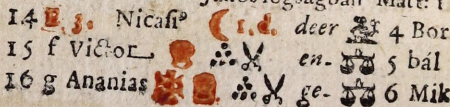 14 E s. Nicasi⁹ 1. d. deer 4 Bor
15 f Victor en- 5 bál
16 g Ananias ge- 6 Mik